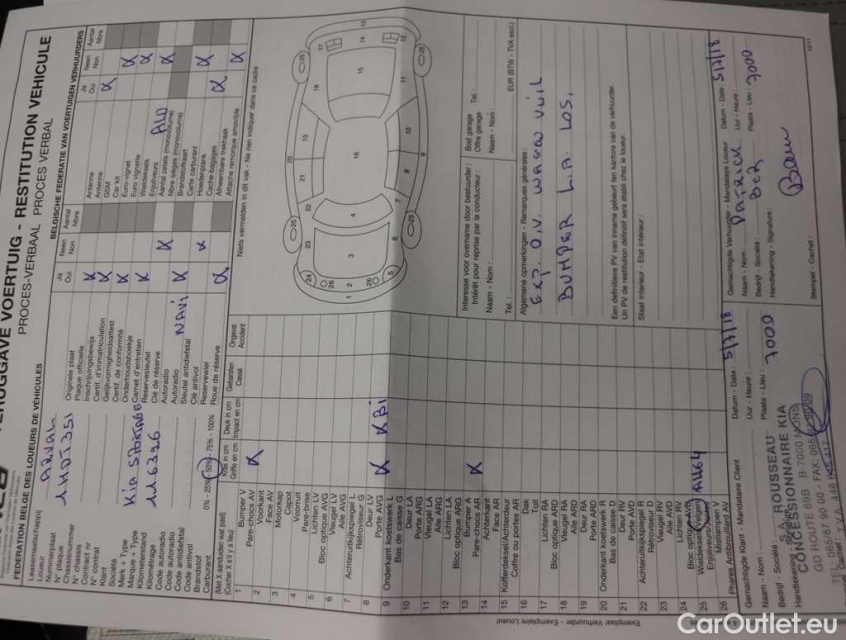 TERUGGAVE VOERTUIG - RESTITUTION VEHICULE
PROCES-VERBAAL PROCES VERBAL
FEDERATION BELGE DES LOUEURS DE VÉHICULES
BELGISCHE FEDERATIE VAN VOERTUIGEN VERHUURDERS
Leasemaatschappij
Loueur
ARVAL
Nummerplaat
N° plaque
Chassisnummer
N° chassis
Contract nr
N° contrat
Klant
Société
Merk + Type
Marque + Type
KIA SPORTAGE
Kilometerstand
Kilométrage
116396
Code autoradio
Code autoradio
Code antidiefstal
Code antivol
Brandstof
Carburant
0% - 25% - 50% - 75% - 100%
Originele plaat
Plaque officielle
Inschrijvingsbewijs
Certif. d'immatriculation
Gelijkvormigheidsattest
Certif. de conformité
Onderhoudsboekje
Carnet d'entretien
Reservesleutel
Clé de réserve
Autoradio
Autoradio
NAVI
Sleutel antidiefstal
Clé antivol
Reservewiel
Roue de réserve
Ja
Oui
Neen
Non
Aantal
Nbre
Antenne
Antenne
GSM
Car kit
Euro-vignet
Euro vignette
Wieldeksels
Enjoliveurs
ALU
Aantal zetels (monovolume)
Nbre sièges (monovolume)
Brandstofkaart
Carte carburant
Hoedenplank
Cache-bagages
Afneembare trekhaak
Attache remorque amovible
Ja
Oui
Neen
Non
Aantal
Nbre
Niets vermelden in dit vak - Ne rien indiquer dans ce cadre
Kras in cm
Griffe en cm
Deuk in cm
Impact en cm
Gebarsten
Cassé
Ongeval
Accident
1 Bumper V
Pare-chocs AV
2 Voorkant
Face AV
3 Motorkap
Capot
4 Voorruit
Pare-brise
5 Lichten LV
Bloc optique AVG
6 Vleugel LV
Aile AVG
7 Achteruitkijkspiegel L
Rétroviseur G
8 Deur LV
Porte AVG
9 Onderkant koetswerk L
Bas de caisse G
10 Deur LA
Porte ARG
11 Vleugel LA
Aile ARG
12 Lichten LA
Bloc optique ARG
13 Bumper A
Pare-chocs AR
14 Achterkant
Face AR
15 Kofferdeksel/Achterdeur
Coffre ou portes AR
16 Dak
Toit
17 Lichten RA
Bloc optique ARD
18 Vleugel RA
Aile ARD
19 Deur RA
Porte ARD
20 Onderkant koetswerk R
Bas de caisse D
21 Deur RV
Porte AVD
22 Achteruitkijkspiegel R
Rétroviseur D
23 Vleugel RV
Aile AVD
24 Lichten RV
Bloc optique AVD
25
26 Mistlampen V
Phares Antibrouillard AV
Interesse voor overname door bestuurder :
Intérêt pour reprise par le conducteur :
Naam - Nom :
Tel. :
Bod garage
Offre garage
Tel. :
Naam - Nom :
EUR (BTW - TVA excl.)
Algemene opmerkingen - Remarques générales :
EXP. O.V. WAGEN VUIL
BUMPER L.A. LOS.
Een definitieve PV van inname gebeurt ten kantore van de verhuurder
Un PV de restitution définitif sera établi chez le loueur.
Staat interieur - Etat intérieur :
Gemachtigde Klant - Mandataire Client
Datum - Date :
5/7/18
Naam - Nom :
Uur - Heure :
Bedrijf - Société :
Plaats - Lieu :
7000
Handtekening - Signature :
S.A. ROUSSEAU
CONCESSIONNAIRE KIA
GD ROUTE 69B B-7000 MONS
Gemachtigde Verhuurder - Mandataire Loueur
Datum - Date :
5/7/18
Naam - Nom :
PATRICK
Uur - Heure :
Bedrijf - Société :
Plaats - Lieu :
7000
Handtekening - Signature :
Stempel - Cachet :
Exemplaar Verhuurder - Exemplaire Loueur
CarOutlet.eu